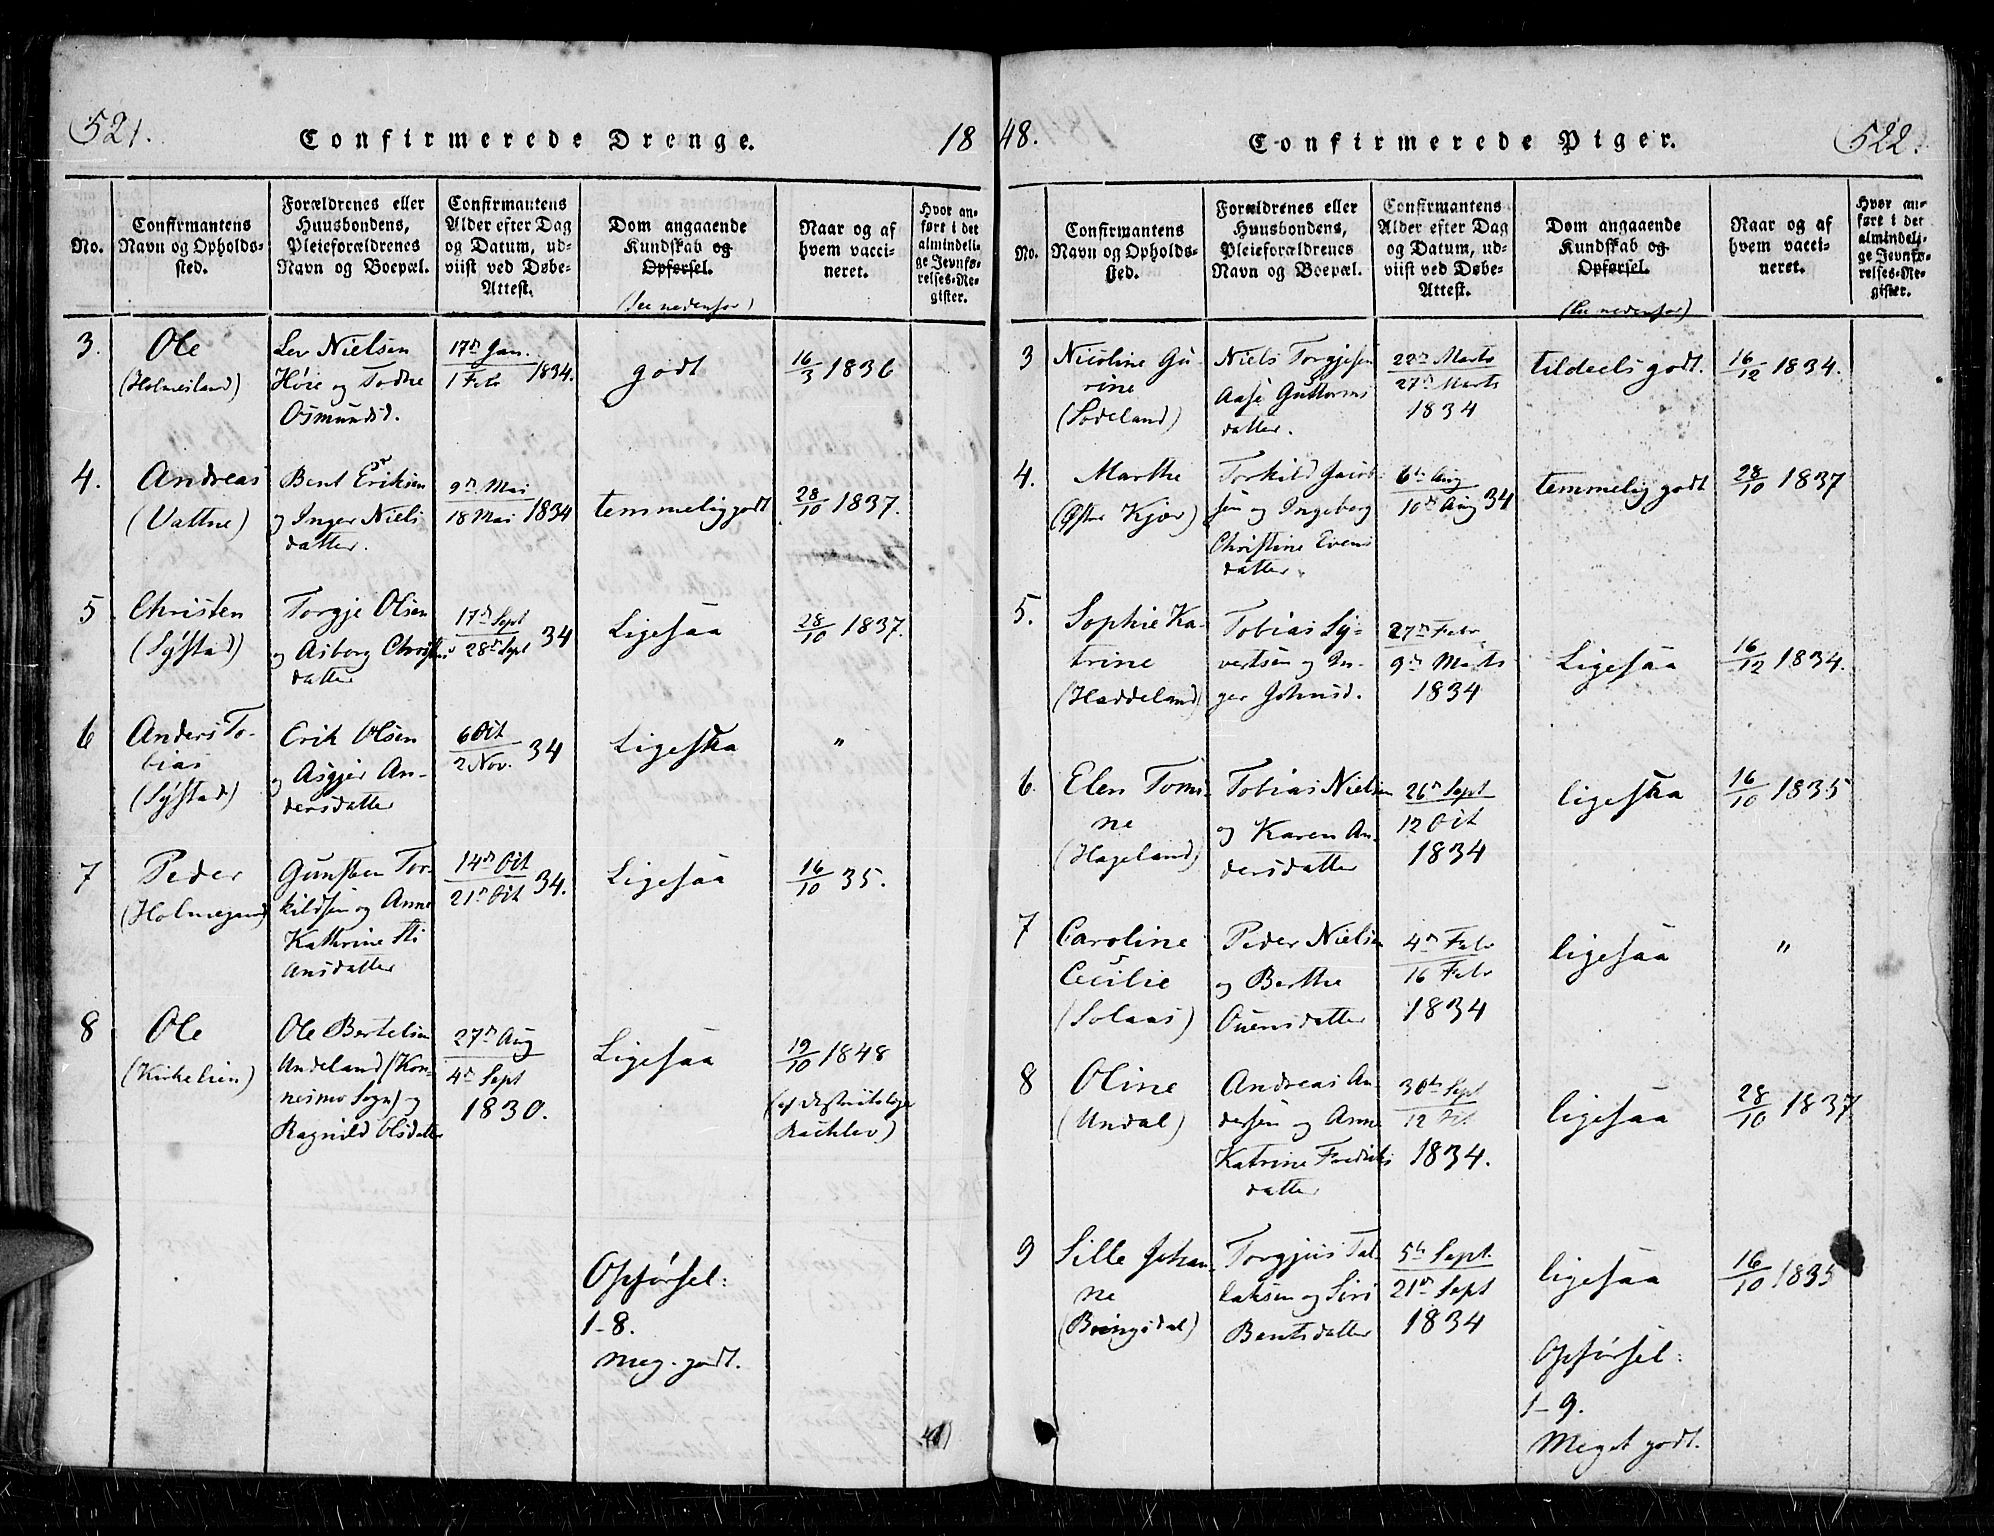 521.
Confirmerede Drenge.
18
No.
Confirmantens
Navn og Opholds-
sted.
Forældrenes eller
Huusbondens,
Pleieforældrenes
Navn og Boepæl.
Confirmantens
Alder efter Dag
og Datum, ud-
viist ved Døbe-
Attest.
Dom angaaende
Kundskab og
Opførsel.
(see nedenfor)
Naar og af
hvem vacci-
neret.
Hvor an-
ført i det
almindeli-
ge Jevnfø-
relses-Re-
gister.
3.
Ole
(Holmesland)
Lev Nielsen
Høie og Todne
Osmundsd.
17de Jan.
1 Febr 1834.
godt
16/3 1836
4.
Andreas
(Vattne)
Bent Eriksen
og Inger Niels
datter.
9de Mai
18 Mai 1834
temmelig godt
28/10 1837.
5
Christen
(Sÿstad)
Torgje Olsen
og Asborg Christens
datter
17de Sept
28de Sept 34
Ligesaa
28/10 1837.
6
Anders To-
bias
(Sÿstad)
Erik Olsen
og Asgjer An-
dersdatter
6 Oct
2 Nov. 34
Ligesaa
"
7
Peder
(Holmegaard)
Gunsten Tor-
kildsen og Anne
Kathrine Sti
ansdatter
14de Oct
21de Oct 34.
Ligesaa
16/10 35.
8
Ole
(Kirkelien)
Ole Bertelsen
Undeland (Kon-
nesmo Sogn) og
Ragnild Olsdatter
27de Aug
4de Sept
1830.
Ligesaa
19/10 1848
(af Districtslæge
Rachlev)
Opførsel:
1-8.
meg. godt.
48.
Confirmerede Piger.
522.
No.
Confirmantens
Navn og Opholds-
sted.
Forældrenes eller
Huusbondens,
Pleieforældrenes
Navn og Boepæl.
Confirmantens
Alder efter Dag
og Datum, ud-
viist ved Døbe-
Attest.
Dom angaaende
Kundskab og
Opførsel.
(see nedenfor)
Naar og af
hvem vacci-
neret.
Hvor an-
ført i det
almindeli-
ge Jevnfø-
relses-Re-
gister.
3
Nicoline Gu-
rine
(Sodeland)
Niels Torgjesen
Aase Guttorms
datter.
22de Marts
27de Marts
1834
tildeels godt.
16/12 1834.
4.
Marthe
(Øftre Kjær)
Torkild Jacob
sen og Ingeborg
Christine Evens
datter.
6te Aug
10de Aug 34
temmelig godt
28/10 1837
5.
Sophie Ka-
trine
(Haddeland)
Tobias Sÿ-
vertsen og In-
ger Johnsd.
27de Febr
9de Marts
1834
Ligesaa
16/12 1834.
6
Elen Tomi-
ne
(Hageland)
Tobias Nielsen
og Karen An-
dersdatter
26de Sept
12 Oct
1834
ligesaa
16/10 1835
7
Caroline
Cecilie
(Solaas)
Peder Nielsen
og Berthe
Ouensdatter
4de Febr
16 Febr
1834
ligesaa
"
8
Oline
(Undal)
Andreas An-
dersen og Anne
Katrine Fredriks
datter
30te Sept
12 Oct
1834.
ligesaa
28/10 1837.
9
Sille Johan-
ne
(Bringsdal)
Torgjuis Tal-
laksen og Siri
Bentsdatter
5te Sept
21de Sept
1834
ligesaa
16/10 1835
Opførsel:
1-9.
Meget godt.